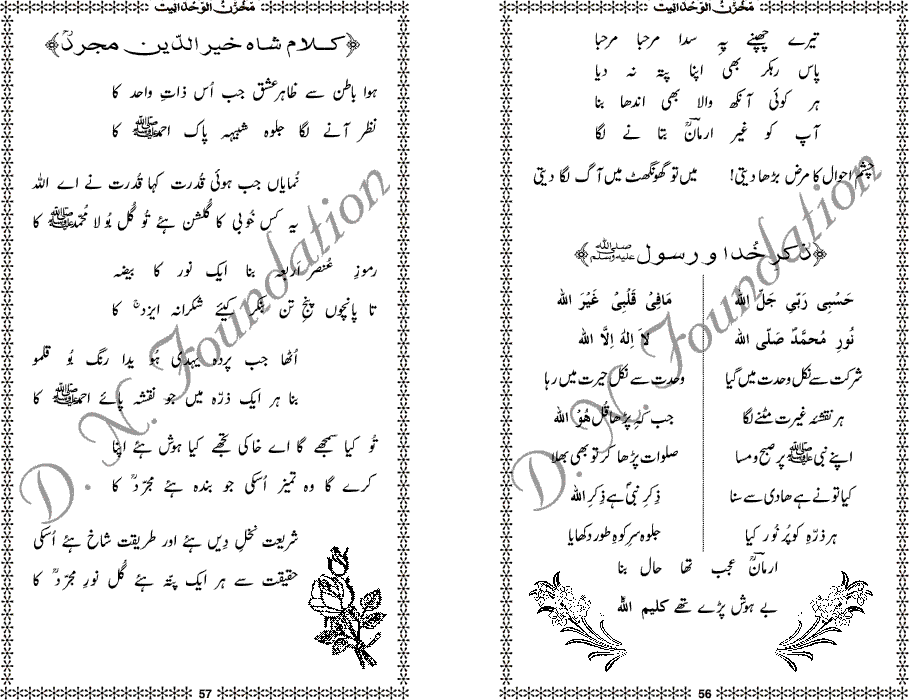 مَخْزَنُ الوَحْدَانِیت
تیرے چھپنے پہ سدا مرحبا مرحبا
پاس رہکر بھی اپنا پتہ نہ دیا
ہر کوئی آنکھ والا بھی اندھا بنا
آپ کو غیر ارمانؔ بتا نے لگا
چشمِ احوال کا مرض بڑھا دیتی! میں تو گھونگھٹ میں آگ لگا دیتی
﴿ذکرِ خُدا و رسول ﷺ﴾
حَسْبِی رَبِّی جَلَّ اللہ مَافِیْ قَلْبِیْ غَیْرَ اللہ
نُورِ مُحمَّدْ صَلّی اللہ لاَ اِلٰہَ اِلاَّ اللہ
شرکت سے نکل وحدت میں گیا وحدت سے نکل حیرت میں رہا
ہر نقشہ غیرت مٹنے لگا جب کہ پڑھا قُل ھُوْ اللہ
اپنے نبی ﷺ پر صبح و مسا صلوات پڑھا کر تو بھی بھلا
کیا تو نے ہے ھادی سے سنا ذِکرِ نبیؐ ہے ذِکرِ اللہ
ہر ذرّہ کو پُر نُور کیا جلوہ سرِ کوہِ طور دکھایا
ارمانؔ عجب تھا حال بنا
بے ہوش پڑے تھے کلیم اللہؑ
56
مَخْزَنُ الوَحْدَانِیت
﴿کلام شاہ خیر الدّین مجردؔ﴾
ہوا باطن سے ظاہر عشق جب اُس ذاتِ واحد کا
نظر آنے لگا جلوہ شبیہہ پاک احمدﷺ کا
نُمایاں جب ہوئی قُدرت کہا قُدرت نے اے اللہ
یہ کس خُوبی کا گلشن ہے تُو گُل بُولا مُحمّدﷺ کا
رموزِ عُنصر اَربعہ بنا ایک نور کا بیضہ
تا پانچوں پنج تن بنکر کیئے شکرانہ ایزد کا
اُٹھا جب پردہ یہدی ہُو یدا رنگ بُو قلمو
بنا ہر ایک ذرّہ میں جو نقشہ پائے احمدﷺ کا
تُو کیا سمجھے گا اے خاکی تجھے کیا ہوش ہے اپنا
کرے گا وہ تمیز اُسکی جو بندہ ہے مجرّدؔ کا
شریعت نخلِ دِیں ہے اور طریقت شاخ ہے اُسکی
حقیقت سے ہر ایک پتّہ ہے گُل نورِ مجرّدؔ کا
57
D. N. Foundation
D. N. Foundation